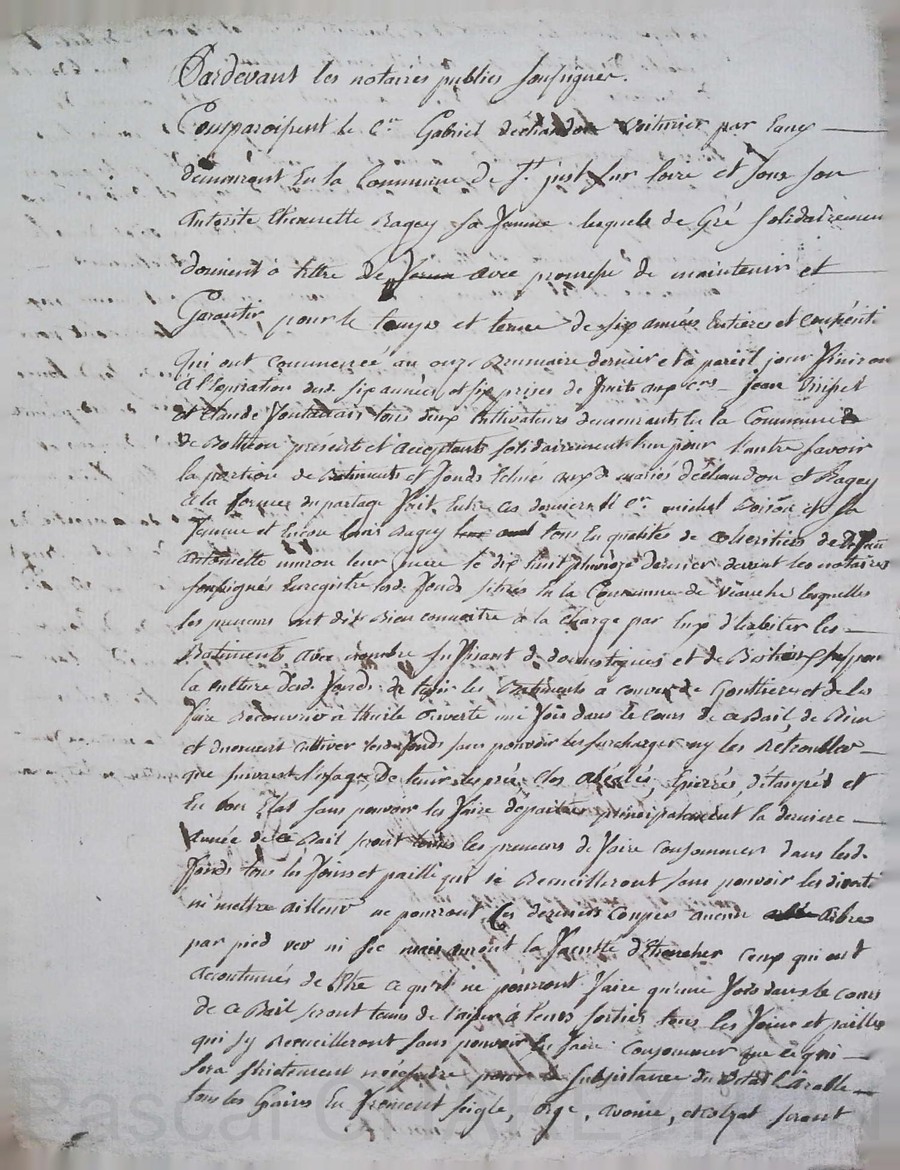 Pardevant les notaires publics soussignes.
Comparoissent le Cen Gabriel dechandon voiturier par eau
demeurant En la Commune de St just sur loire et sous son
autorité thiennette Ragey sa femme lesquels de Gré solidairement
donnent à titre de ferme avec promesse de maintenir et
Garantir pour le temps et terme de six années Entieres et
qui ont commencée au onze Brumaire dernier et a pareil jour finiron
a l'Expiration desd. six années et six prises de fruits aux Cens jean
et Claude tous deux Cultivateurs demeurants En la Commune
de Bouthéon presents et acceptants solidairement l'un pour l'autre savoir
la portion de Batiments et fonds Echue auxd. mariés déchandon et Ragey
la forme du partage fait Entre ces derniers le Cen michel et sa
femme et Encore Ragey tous En qualités de coheritiers de
antoinette leur mere le dix huit pluviose dernier devant les notaires
soussignés Enregistré lesd. fonds situés En la Commune de veauche lesquelles
les preneurs ont dit Bien connoitre a la charge par Eux d'habiter les
Batiments avec nombre suffisant de domestiques et de Bestiaux pour
la culture desd. fonds de tenir les Batiments a couvert de Gouttieres et de les
faire Recouvrir à thuile ouverte une fois dans le cours de ce Bail, de Bien
et duement cultiver lesd. fonds sans pouvoir les surcharger ny les Rétroubler
que suivant l'usage, De tenir les prés Clos, Epierrés, détaupés et
En bon Etat sans pouvoir les faire depaitre principalement la derniere
année de ce Bail seront tenus les preneurs de faire Consommer dans lesd.
fonds tous les foins et paille qui se Recueilleront sans pouvoir les divertir
ni mettre ailleurs ne pourront Ces derniers Couper aucun arbre
par pied verd ni sec mais auront la faculté d'Ebrancher ceux qui ont
accoutumés de l'Etre ce qu'ils ne pourront faire qu'une fois dans le cours
de ce Bail seront tenus de laisser à leurs sorties tous les foins et pailles
qui s'y Recueilleront sans pouvoir En faire Consommer que ce qui
sera strictement nécessaire pour la subsistance du Bétail
tous les Grains En froment seigle, orge, avoine, et seront